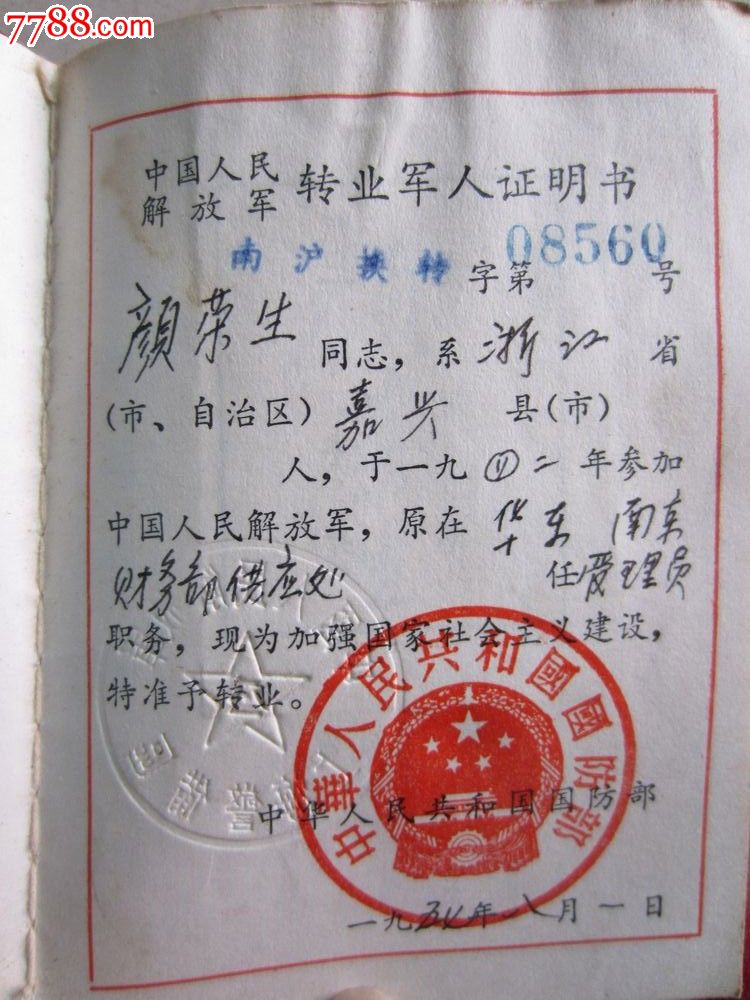 7788.com
中国人民
解放军 转业军人证明书
南沪换转字第08560号
顏荣生同志，系浙江省
(市、自治区)嘉兴县(市)
人，于一九四二年参加
中国人民解放军，原在华东 南京
财务部供应处 任管理员
职务，现为加强国家社会主义建设，
特准予转业。
中华人民共和国国防部
中華人民共和國國防部
一九五七年八月一日